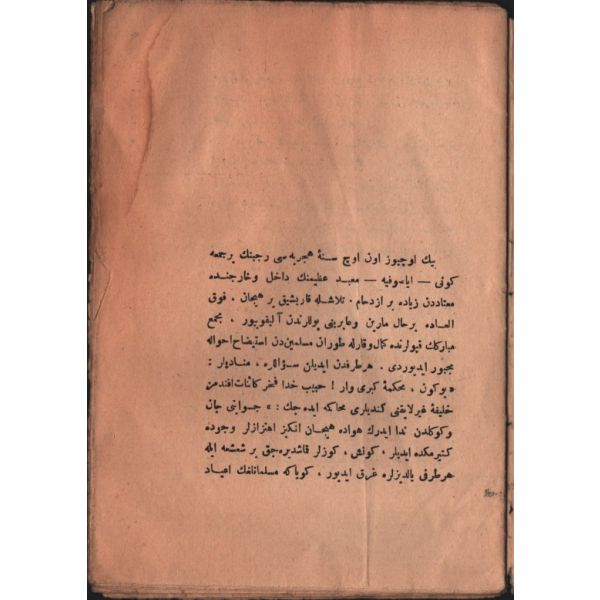 بيك اوچيوز اون اوچ سنهٔ هجريه سى رجبنك برجمعه
كونى — اياصوفيه — معبد عظيمنك داخل وخارجنده
معتاددن زياده بر ازدحام . تلاشله قاريشيق بر هيجان . فوق
العاده برحال مارين وعابرينى يوللرندن آليقويويور . مجمع
مباركك قپولرنده كمال وقارله طوران مسلمين دن استيضاح احواله
مجبور ايديوردى . هرطرفدن ايديلن سؤاللره ، مناديلر :
« بوكون ، محكمهٔ كبرى وار ! حبيب خدا فخر كائنات افندمز
خليفهٔ غيرلايقنى كنديلرى محاكمه ايده جك : » جوابنى جان
وكوكلدن ندا ايدرك هواده هيجان انكيز اهتزازلر وجوده
كتيرمكده ايديلر ، كونش ، كوزلر قاشديره جق بر شعشعه ايله
هرطرفى يالديزلره غرق ايديور ، كوياكه مسلمانلغك اعياد